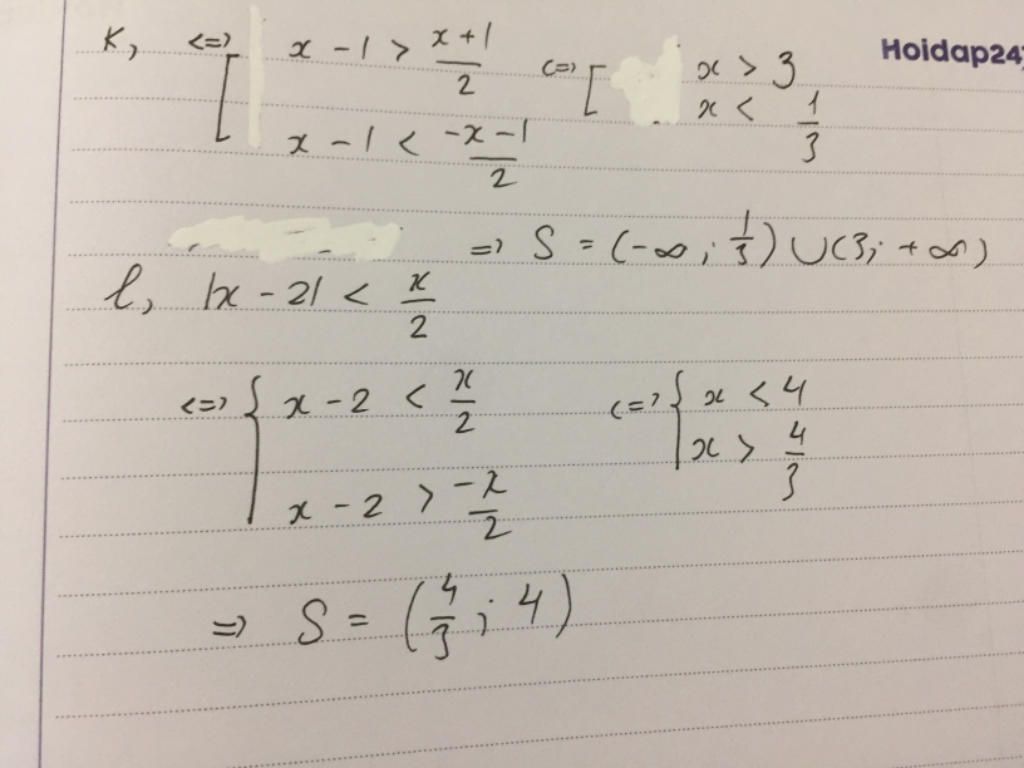 K, <=> [ x - 1 > (x + 1)/2 <=> [ x > 3
x - 1 < (-x - 1)/2 x < 1/3
Hoidap24
=> S = (-∞ ; 1/3) ∪ (3; +∞)
l, |x - 2| < x/2
<=> { x - 2 < x/2 <=> { x < 4
x - 2 > -x/2 x > 4/3
=> S = (4/3 ; 4)